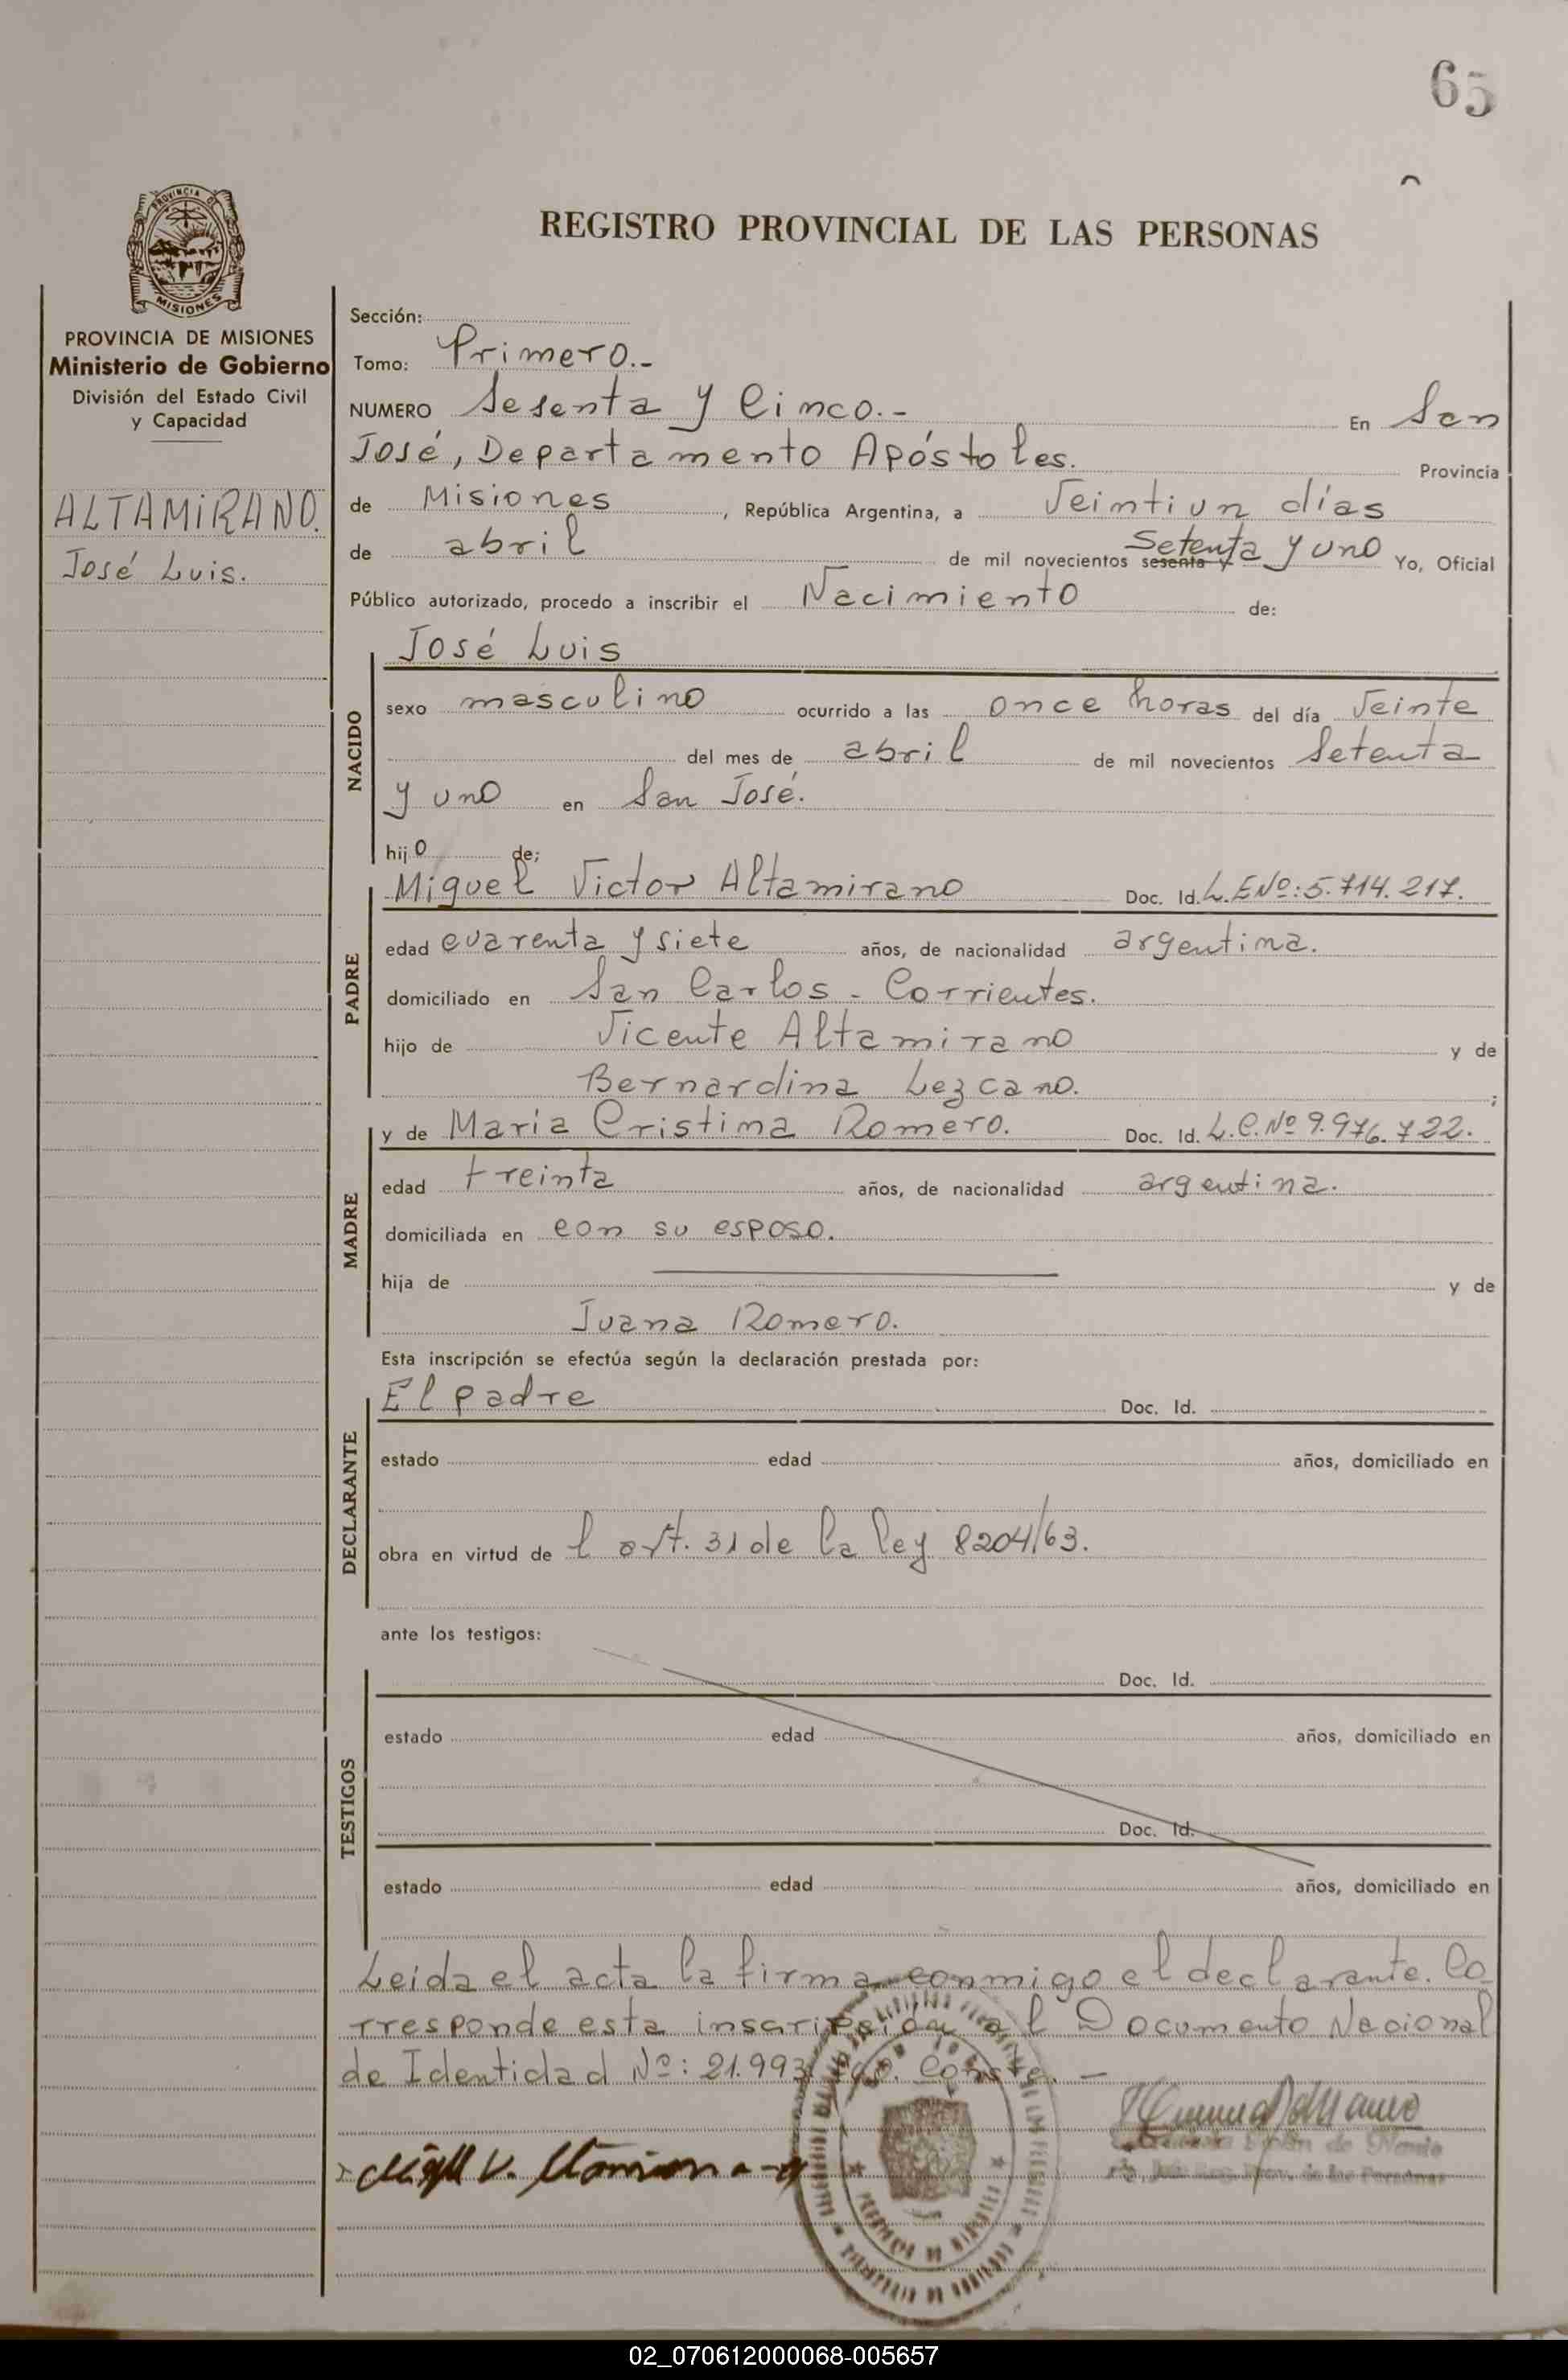 65
REGISTRO PROVINCIAL DE LAS PERSONAS
PROVINCIA DE
MISIONES
PROVINCIA DE MISIONES
Ministerio de Gobierno
División del Estado Civil
y Capacidad
ALTAMIRANO.
José Luis.
Sección:
Tomo: Primero.-
NUMERO Sesenta y Cinco.- En San
José, Departamento Apóstoles. Provincia
de Misiones, República Argentina, a Veintiun días
de abril de mil novecientos sesenta y Setenta y uno Yo, Oficial
Público autorizado, procedo a inscribir el Nacimiento de:
NACIDO
José Luis
sexo masculino ocurrido a las once horas del día Veinte
del mes de abril de mil novecientos Setenta
y uno en San José.
hijo de;
PADRE
Miguel Victor Altamirano Doc. Id. L.E Nº: 5.714.217.
edad cuarenta y siete años, de nacionalidad argentina.
domiciliado en San Carlos - Corrientes.
hijo de Vicente Altamirano y de
Bernardina Lezcano. ;
MADRE
y de María Cristina Romero. Doc. Id. L.C. Nº 9.976.722.
edad treinta años, de nacionalidad argentina.
domiciliada en con su esposo.
hija de y de
Juana Romero.
Esta inscripción se efectúa según la declaración prestada por:
DECLARANTE
El padre Doc. Id.
estado edad años, domiciliado en
obra en virtud de l art. 31 de la ley 8204/63.
ante los testigos:
TESTIGOS
Doc. Id.
estado edad años, domiciliado en
Doc. Id.
estado edad años, domiciliado en
Leída el acta la firma conmigo el declarante. Co-
rresponde esta inscripción al Documento Nacional
de Identidad Nº: 21.993 Conste. -
V.
de las Personas
PROVINCIA DE MISIONES
MINISTERIO DE GOBIERNO
02_070612000068-005657